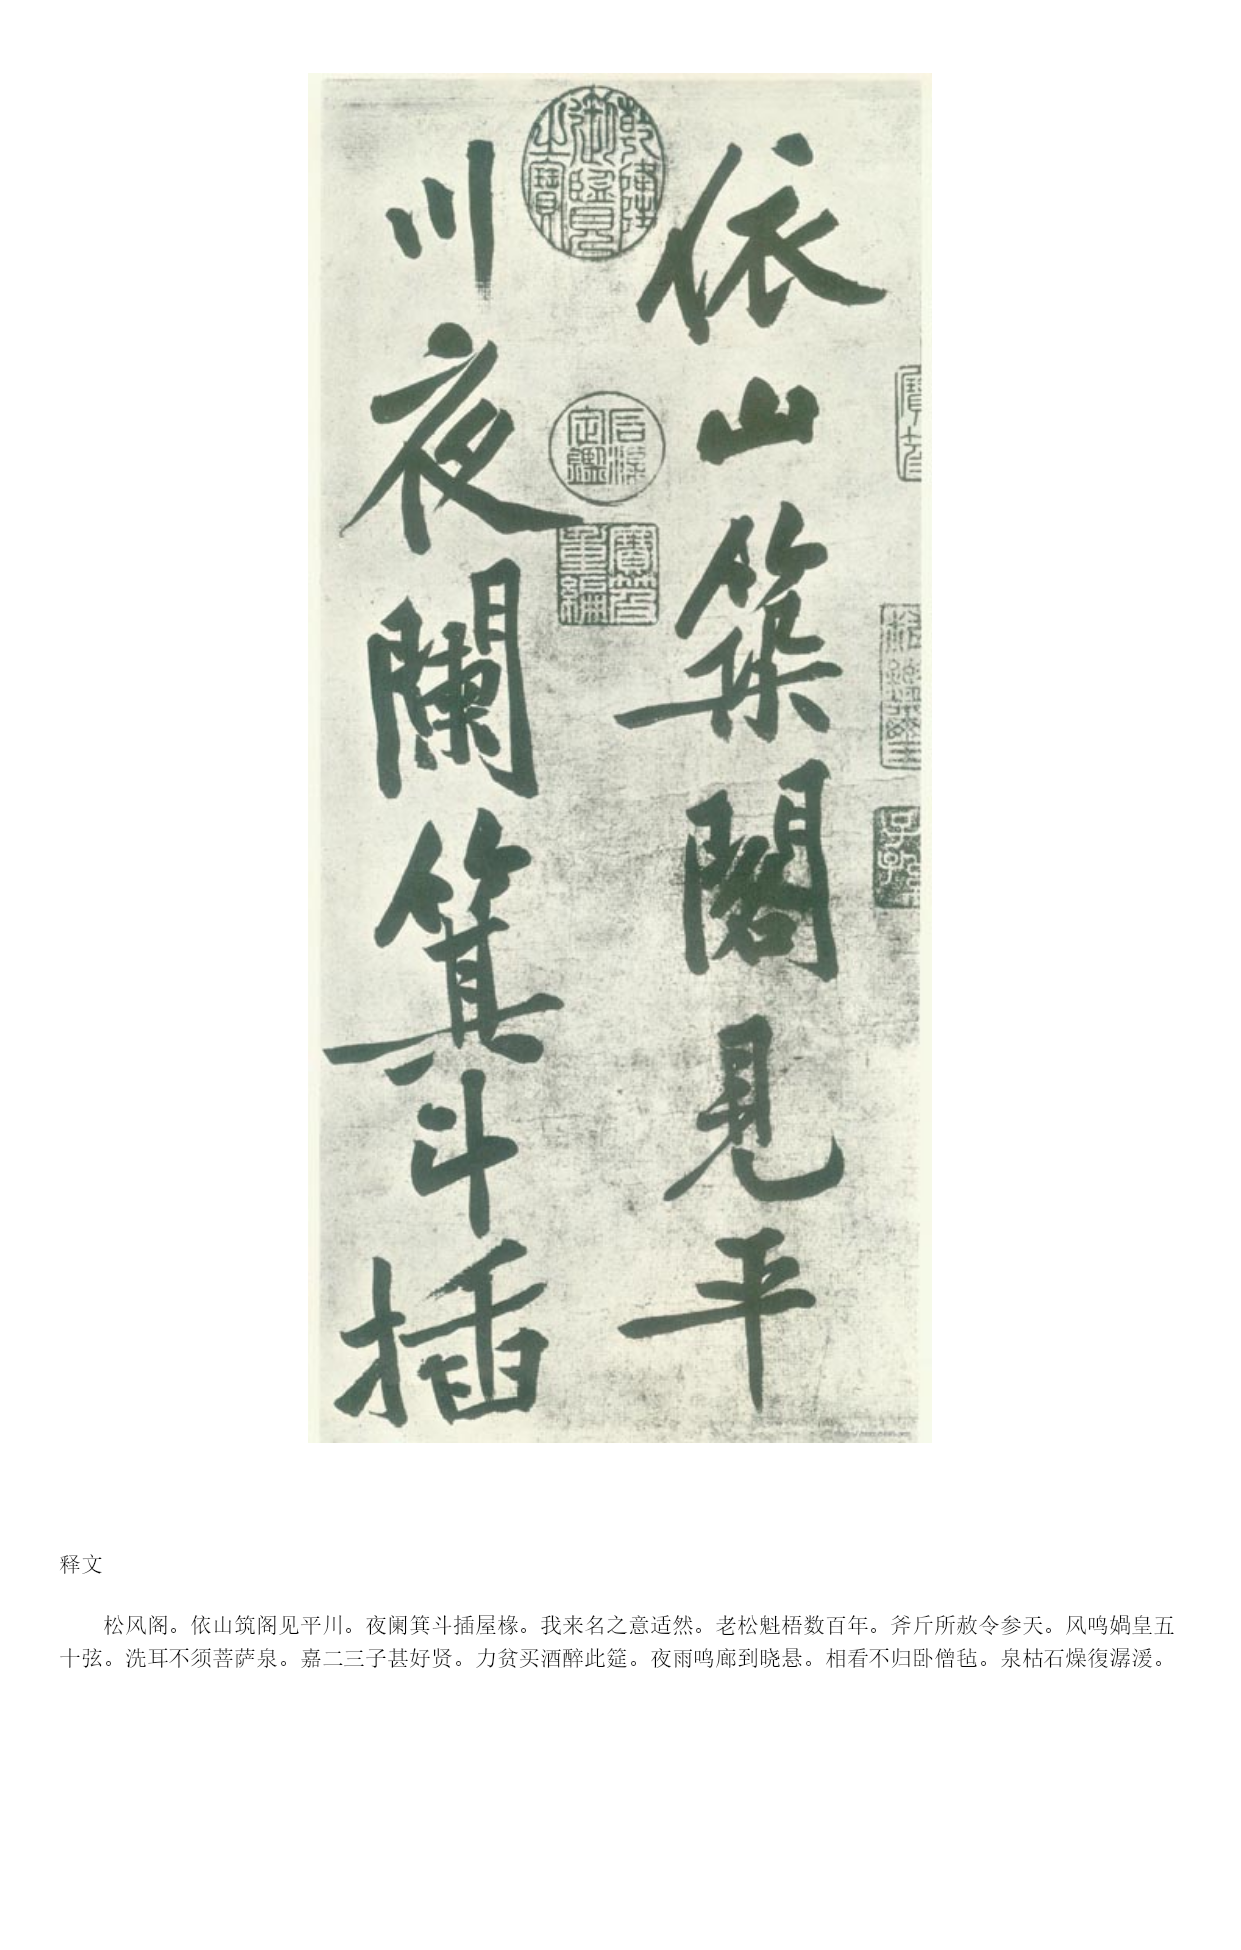 依山築閣見平
川夜闌箕斗插
乾隆御覽之寶
石渠定鑑
寶笈重編
释文
松风阁。依山筑阁见平川。夜阑箕斗插屋椽。我来名之意适然。老松魁梧数百年。斧斤所赦令参天。风鸣娲皇五
十弦。洗耳不须菩萨泉。嘉二三子甚好贤。力贫买酒醉此筵。夜雨鸣廊到晓悬。相看不归卧僧毡。泉枯石燥復潺湲。